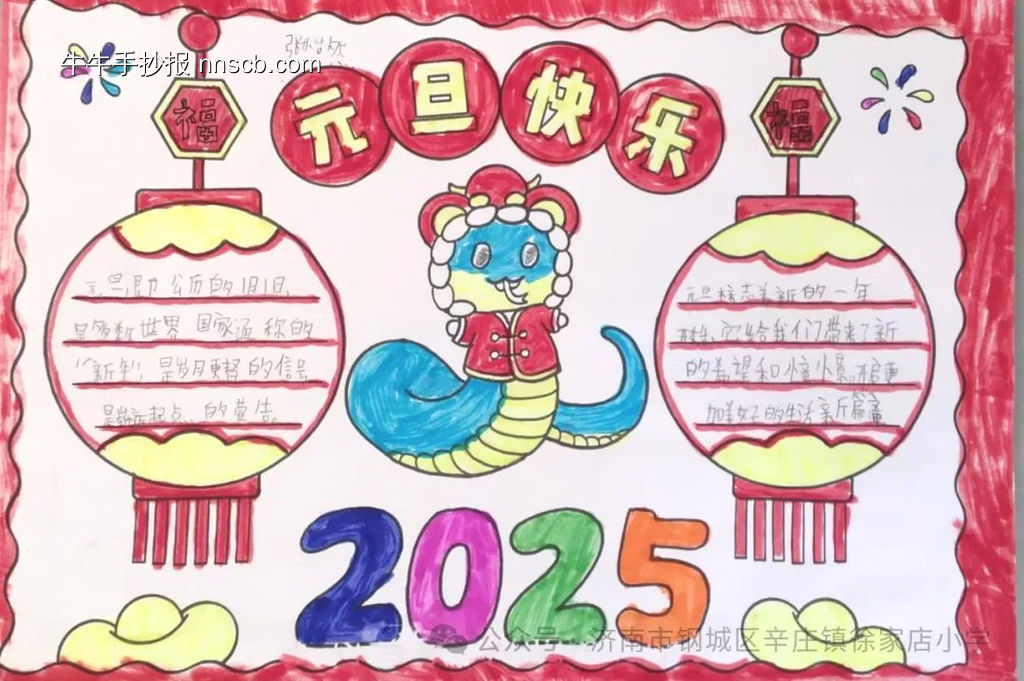 牛牛手抄报 nnscb.com
元旦快乐
福
福
元旦,即公历的1月1日
是多数世界国家通称的
"新年",是岁月更替的信号
的宣告。
元旦标志着新的一年
它给我们带来了新
的希望和憧憬
加美好的生活新篇章
2025
公众号·济南市钢城区辛庄镇徐家店小学